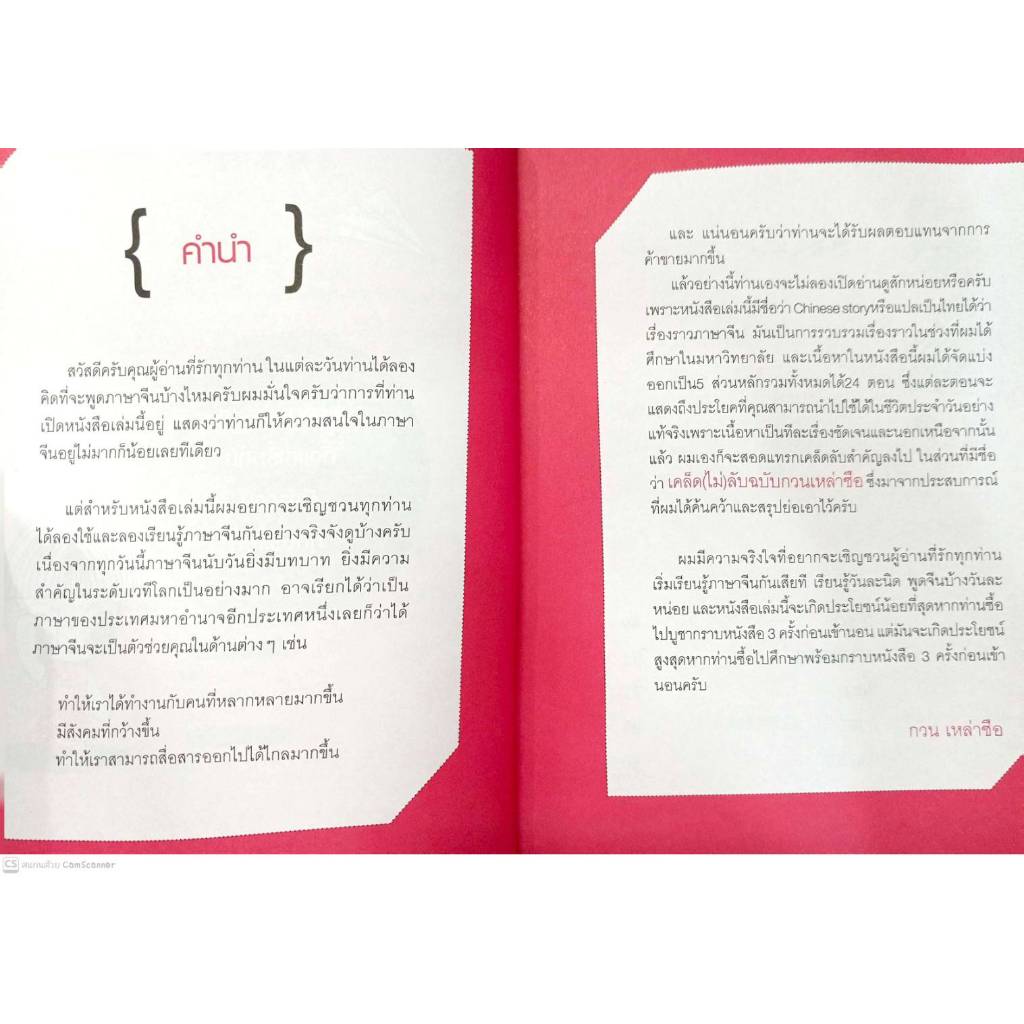 { คำนำ }
สวัสดีครับคุณผู้อ่านที่รักทุกท่าน ในแต่ละวันท่านได้ลอง
คิดที่จะพูดภาษาจีนบ้างไหมครับผมมั่นใจครับว่าการที่ท่าน
เปิดหนังสือเล่มนี้อยู่ แสดงว่าท่านก็ให้ความสนใจในภาษา
จีนอยู่ไม่มากก็น้อยเลยทีเดียว
แต่สำหรับหนังสือเล่มนี้ผมอยากจะเชิญชวนทุกท่าน
ได้ลองใช้และลองเรียนรู้ภาษาจีนกันอย่างจริงจังดูบ้างครับ
เนื่องจากทุกวันนี้ภาษาจีนนับวันยิ่งมีบทบาท ยิ่งมีความ
สำคัญในระดับเวทีโลกเป็นอย่างมาก อาจเรียกได้ว่าเป็น
ภาษาของประเทศมหาอำนาจอีกประเทศหนึ่งเลยก็ว่าได้
ภาษาจีนจะเป็นตัวช่วยคุณในด้านต่าง ๆ เช่น
ทำให้เราได้ทำงานกับคนที่หลากหลายมากขึ้น
มีสังคมที่กว้างขึ้น
ทำให้เราสามารถสื่อสารออกไปได้ไกลมากขึ้น
และ แน่นอนครับว่าท่านจะได้รับผลตอบแทนจากการ
ค้าขายมากขึ้น
แล้วอย่างนี้ท่านเองจะไม่ลองเปิดอ่านดูสักหน่อยหรือครับ
เพราะหนังสือเล่มนี้มีชื่อว่า Chinese storyหรือแปลเป็นไทยได้ว่า
เรื่องราวภาษาจีน มันเป็นการรวบรวมเรื่องราวในช่วงที่ผมได้
ศึกษาในมหาวิทยาลัย และเนื้อหาในหนังสือนี้ผมได้จัดแบ่ง
ออกเป็น5 ส่วนหลักรวมทั้งหมดได้24 ตอน ซึ่งแต่ละตอนจะ
แสดงถึงประโยคที่คุณสามารถนำไปใช้ได้ในชีวิตประจำวันอย่าง
แท้จริงเพราะเนื้อหาเป็นทีละเรื่องชัดเจนและนอกเหนือจากนั้น
แล้ว ผมเองก็จะสอดแทรกเคล็ดลับสำคัญลงไป ในส่วนที่มีชื่อ
ว่า เคล็ด(ไม่)ลับฉบับกวนเหล่าซือ ซึ่งมาจากประสบการณ์
ที่ผมได้ค้นคว้าและสรุปย่อเอาไว้ครับ
ผมมีความจริงใจที่อยากจะเชิญชวนผู้อ่านที่รักทุกท่าน
เริ่มเรียนรู้ภาษาจีนกันเสียที เรียนรู้วันละนิด พูดจีนบ้างวันละ
หน่อย และหนังสือเล่มนี้จะเกิดประโยชน์น้อยที่สุดหากท่านซื้อ
ไปบูชากราบหนังสือ 3 ครั้งก่อนเข้านอน แต่มันจะเกิดประโยชน์
สูงสุดหากท่านซื้อไปศึกษาพร้อมกราบหนังสือ 3 ครั้งก่อนเข้า
นอนครับ
กวน เหล่าซือ
CS สแกนด้วย CamScanner